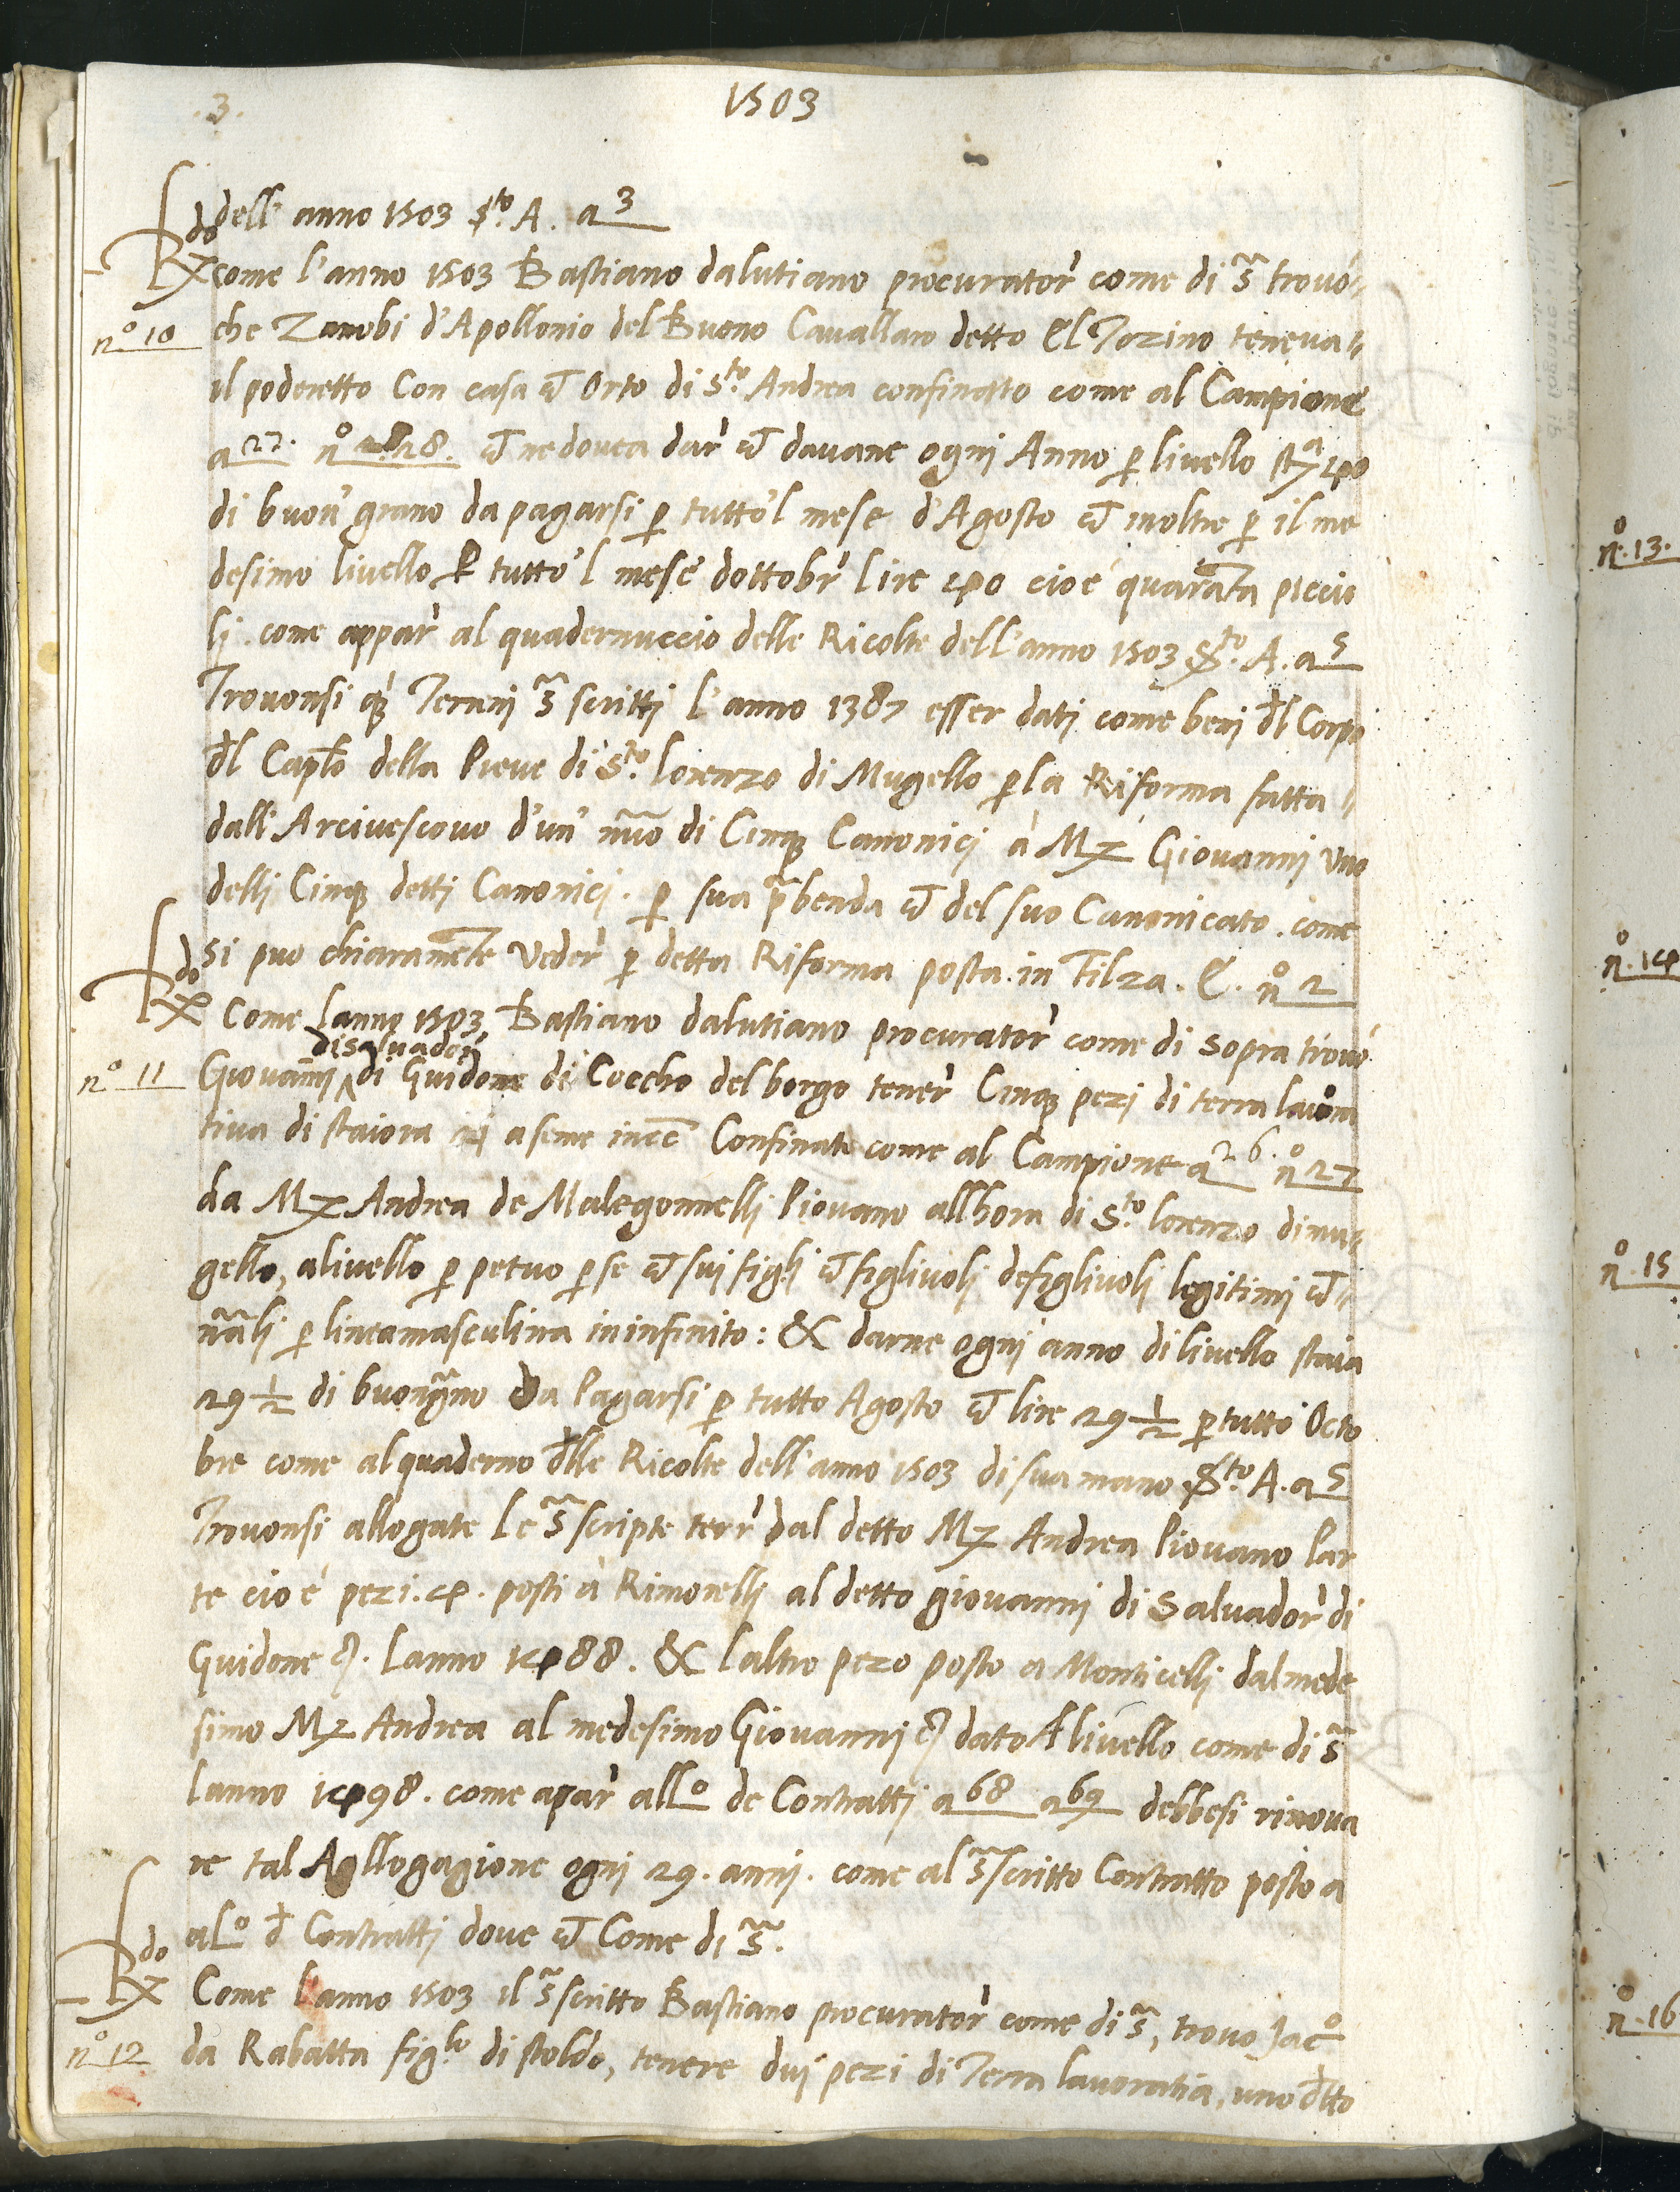 3.
1503
dell' anno 1503 S.to A. a 3
do
R.x come l'anno 1503 Bastiano dalutiano procurator come di s~ trovò
n.o 10 che Zanobi d'Apollonio del Buono Cavallaro detto El Tozino teneva
il poderetto Con casa et Orto di S.to Andrea confinatto come al Campione
a 27. n.o 28. et ne dovea dar et davane ogni Anno p livello sta 40
di buon grano da pagarsi p tutto'l mese d'Agosto et inoltre p il me
desimo livello P tutto'l mese dottobr lire 40 cioè quarata piccio
li. come appar al quadernuccio delle Ricolte dell'anno 1503 S.to A. a 5
Trovonsi q Terreni s~scritti l'anno 1387 esser dati come beni dl Corpo
dl Caplo della Pieve di S.to lorenzo di Mugello p la Riforma fatta
dall'Arcivescovo d'un' nuo di Cinq Canonici à M.x Giovanni vno
delli Cinq detti Canonici. p sua p~benda et del suo Canonicato. come
si puo chiaramete veder p detta Riforma posta. in Filza. E. n.o 2
do
R.x Come lanno 1503 Bastiano dalutiano procurator come di sopra trovò
disaluador
n.o 11 Giovanni di Guidone di Coccho del borgo tener Cinq pezi di terra lauora
tiua di staiora a seme incc Confinate come al Campione a 26. n.o 27
da M.x Andrea de Malegonnelli Piovano allhora di S.to lorenzo dimu
gello, alivello p petuo p se et sui figli et figlivoli defiglivoli legitimi et
nali p linea masculina in infinito: & darne ogni anno di livello staia
29 1/2 di buon grno da Pagarsi p tutto Agosto et lire 29 1/2 p tutto Octo
bre come al quaderno dlle Ricolte dell'anno 1503 di sua mano S.to A. a 5
Trovonsi allogate Le s~scripte terr dal detto M.x Andrea Piovano Par
te cio è pezi. 4. posti à Rimorelli al detto giovanni di Salvador di
Guidone. Lanno 1488. & laltro pezo posto a Monticelli dal mede
simo M.x Andrea al medesimo Giovanni dato A livello come di s~
lanno 1498. come apar all.o de Contratti a 68 a 69 debbesi rinova
re tal Agllogagione ogni 29. anni. come al s~scritto Contratto posto a
a L.o d Contratti dove et Come di s~.
do
R.x Come l'anno 1503 il s~scritto Bastiano procurator come di s~, trovo Jac.o
n.o 12 da Rabatta fig.lo di stoldo, tenere dui pezi di Terra lavoratia, uno dtto
n.o 13.
n.o 14
n.o 15
n.o 16